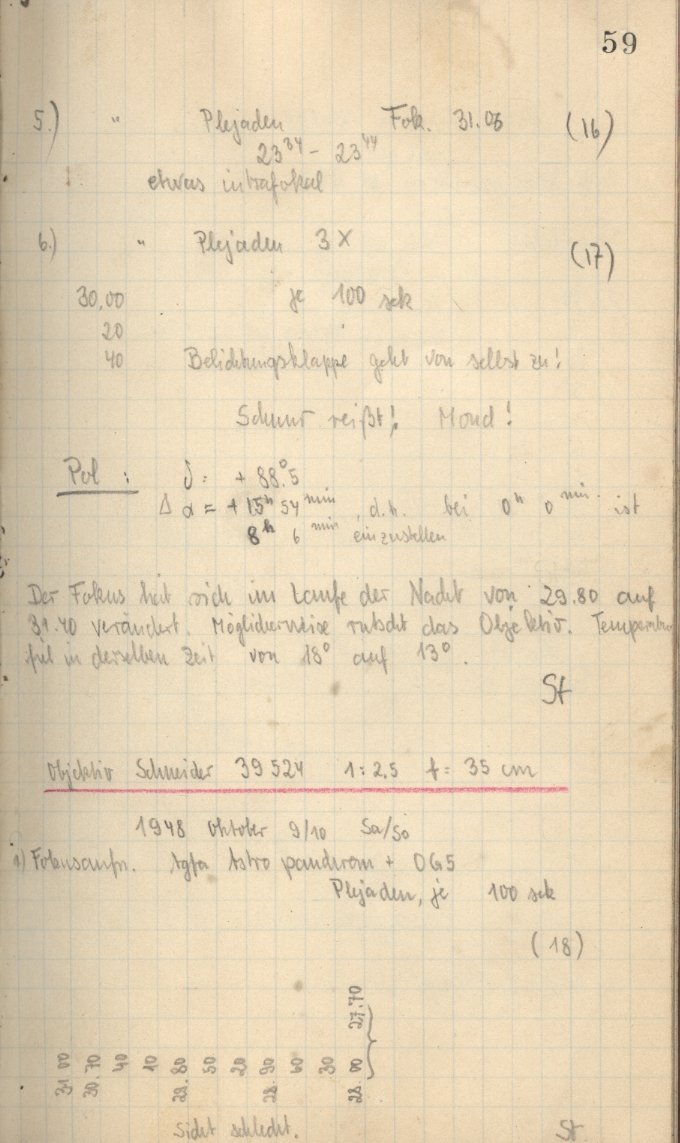 59
5.) " Plejaden Fok. 31.05 (16)
23³⁴ - 23⁴⁴
etwas intrafokal
6.) " Plejaden 3 X (17)
30,00 je 100 sek
20
40 Belichtungsklappe geht von selbst zu!
Schnur reißt! Mond!
Pol : δ = + 88°.5
Δ α = + 15ʰ 54 ᵐⁱⁿ, d.h. bei 0ʰ 0 ᵐⁱⁿ· ist
8ʰ 6 ᵐⁱⁿ einzustellen
Der Fokus hat sich im Laufe der Nacht von 29.80 auf
31.40 verändert. Möglicherweise rutscht das Objektiv. Temperatur
fiel in derselben Zeit von 18° auf 13°.
St
Objektiv Schneider 39524 1:2,5 f = 35 cm
1948 Oktober 9/10 Sa/So
1) Fokusaufn. Agfa Astro panchrom + OG5
Plejaden, je 100 sek
(18)
31.00
30.70
40
10
50
20
28.90
60
30
28.00 27.70
Sicht schlecht.
St